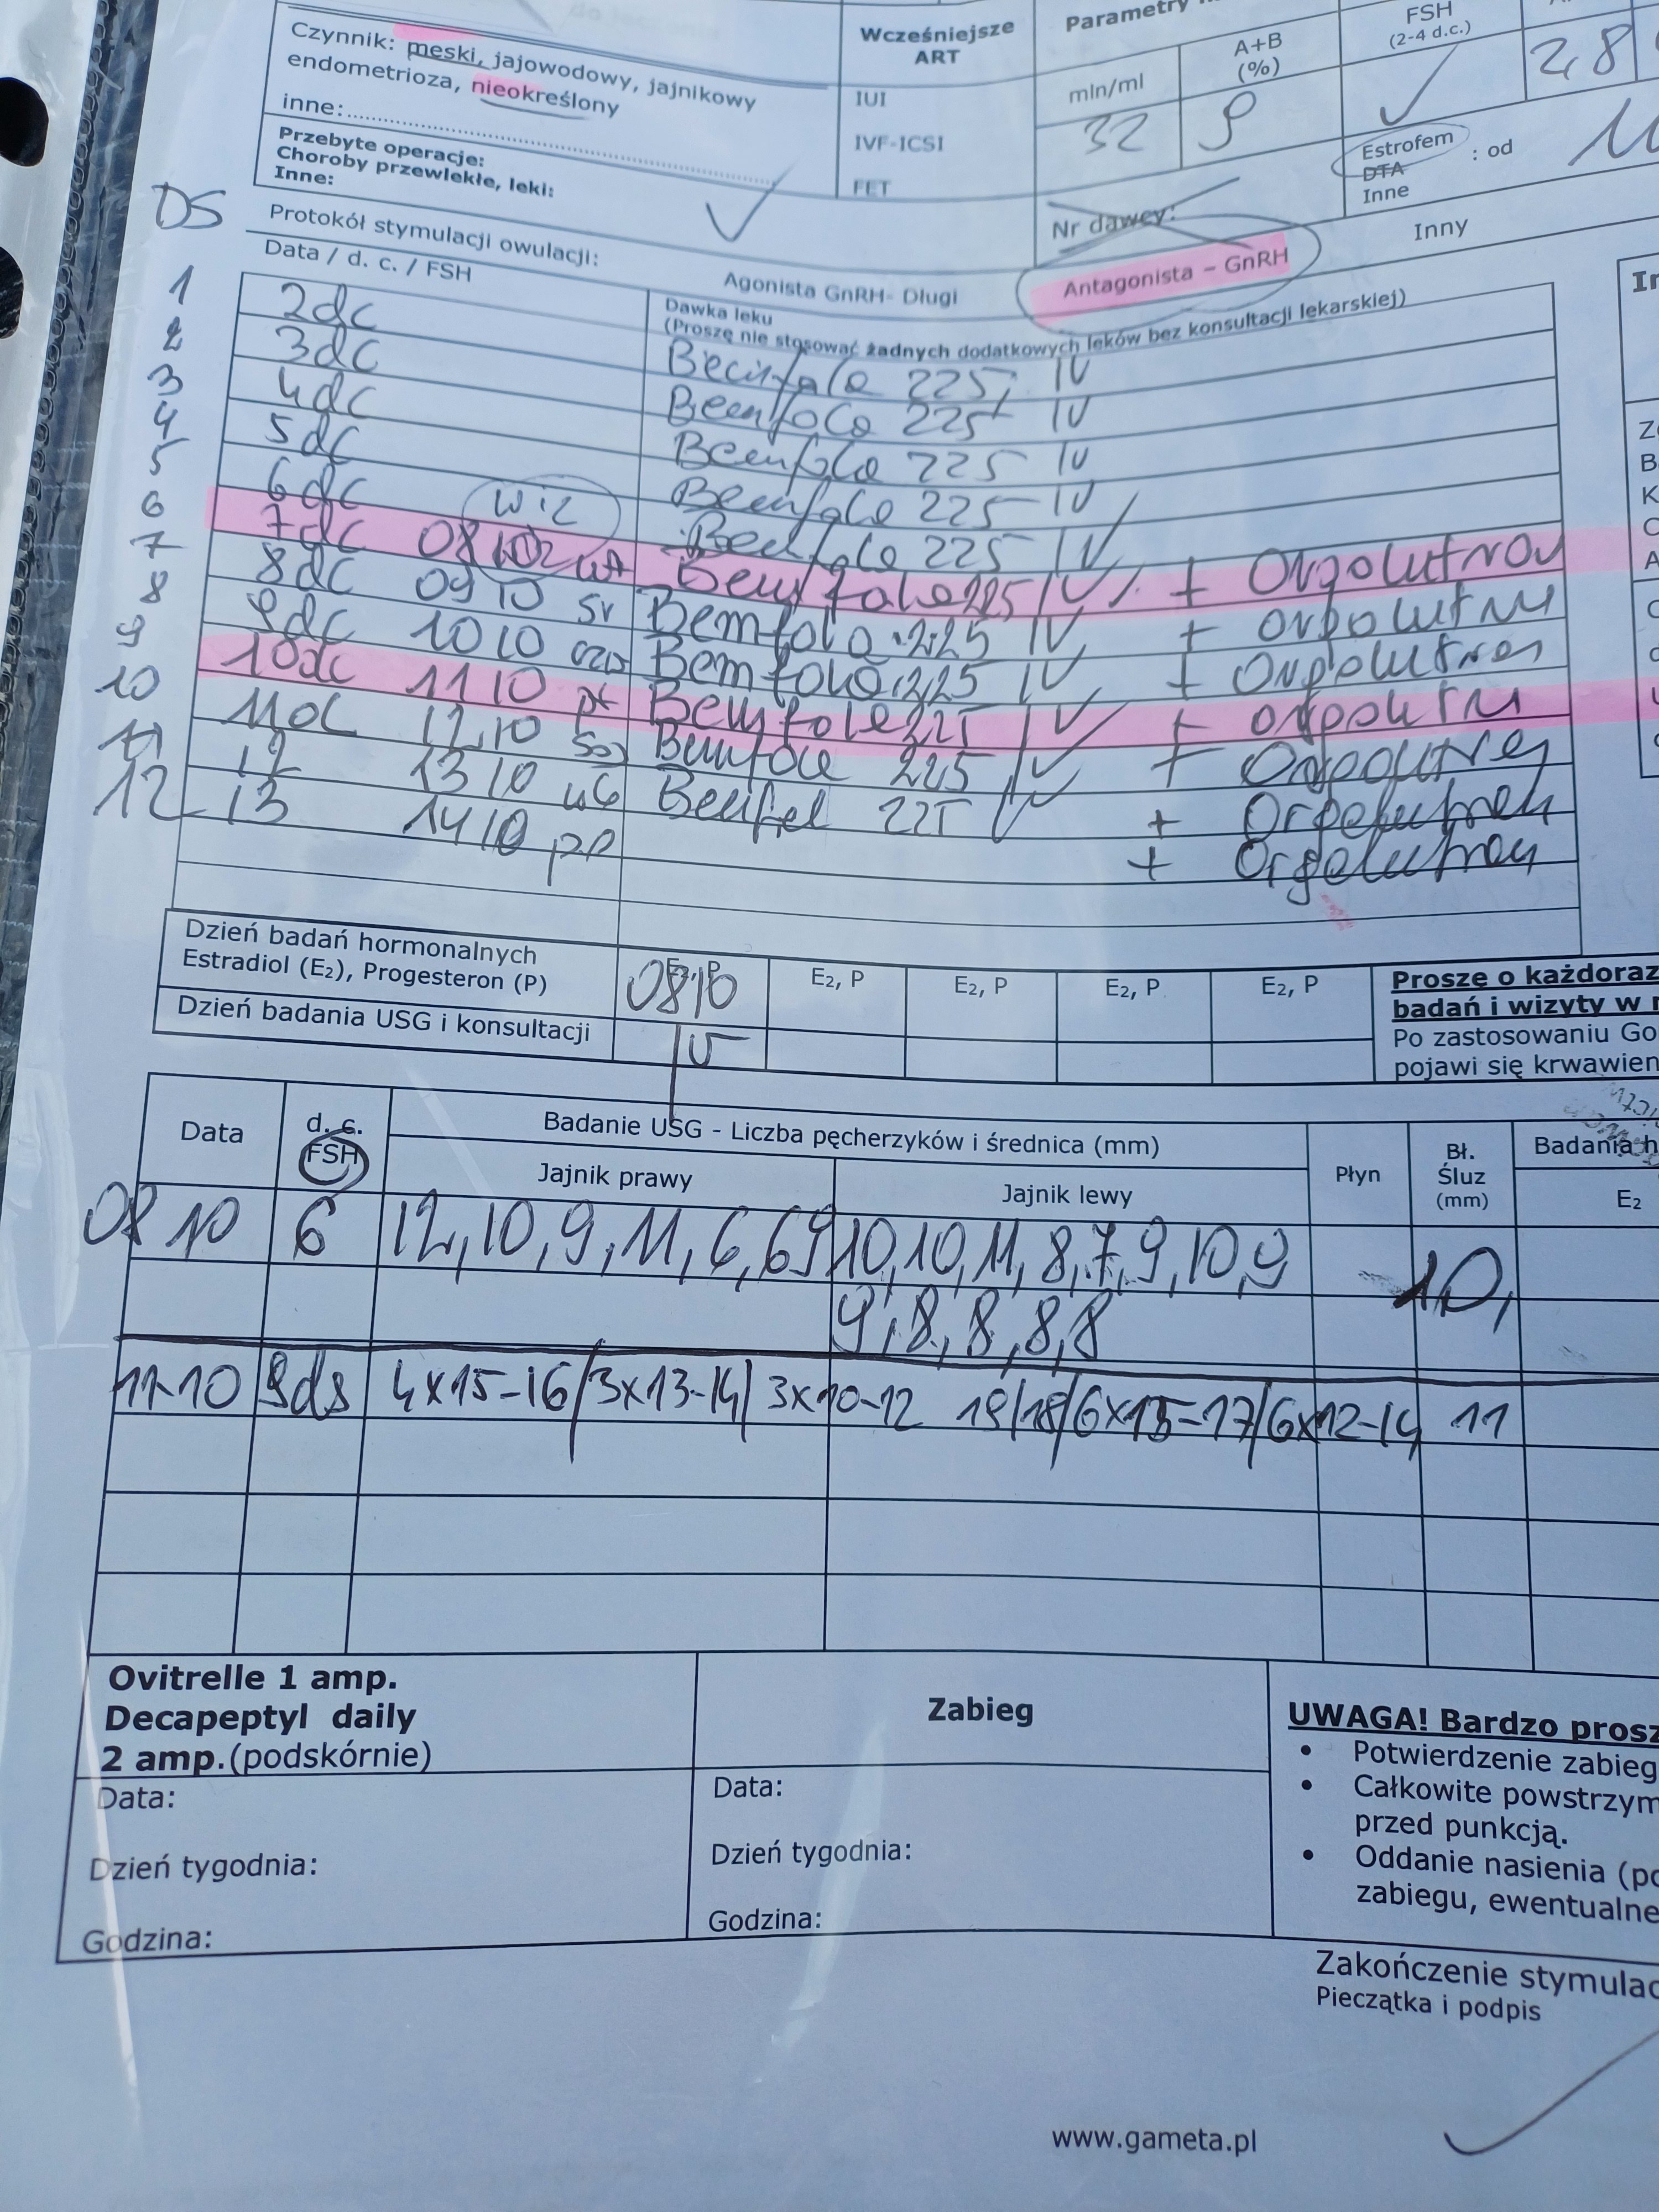 Czynnik: męski, jajowodowy, jajnikowy
endometrioza, nieokreślony
inne:
Przebyte operacje:
Choroby przewlekłe, leki:
Inne:
Wcześniejsze
ART
IUI
IVF-ICSI
FET
Parametry
mln/ml
A+B
(%)
32
FSH
(2-4 d.c.)
2,8
Nr dawcy:
Estrofem
DTA
Inne
: od
DS
Protokół stymulacji owulacji:
Agonista GnRH- Długi
Antagonista - GnRH
Inny
Data / d. c. / FSH
Dawka leku
(Proszę nie stosować żadnych dodatkowych leków bez konsultacji lekarskiej)
1 2dc Bemfola 225 IU
2 3dc Bemfola 225 IU
3 4dc Bemfola 225 IU
4 5dc Bemfola 225 IU
5 6dc wiz Bemfola 225 IU
6 7dc 08 10 wt Bemfola 225 IU + Orgalutran
7 8dc 09 10 śr Bemfola 225 IU + Orgalutran
8 9dc 10 10 czw Bemfola 225 IU + Orgalutran
9 10dc 11 10 pt Bemfola 225 IU + Orgalutran
10 11dc 12.10 Bemfola 225 IU + Orgalutran
11 12 13 10 Bemfola 225 IU + Orgalutran
12 13 14 10 + Orgalutran
Dzień badań hormonalnych
Estradiol (E2), Progesteron (P)
E2, P
0810
E2, P
E2, P
E2, P
E2, P
Dzień badania USG i konsultacji
Proszę o każdoraz
badań i wizyty w
Po zastosowaniu Go
pojawi się krwawien
Data
d. c.
FSH
Badanie USG - Liczba pęcherzyków i średnica (mm)
Jajnik prawy
Jajnik lewy
Płyn
Bł.
Śluz
(mm)
Badania h
E2
08 10 6 12,10,9,11,6,6,9 10,10,11,8,7,9,10,9 10,
9,8,8,8,8
11-10 9ds 4x15-16/3x13-14/3x10-12 19/18/6x15-17/6x12-14 11
Ovitrelle 1 amp.
Decapeptyl daily
2 amp.(podskórnie)
Data:
Dzień tygodnia:
Godzina:
Zabieg
Data:
Dzień tygodnia:
Godzina:
UWAGA! Bardzo prosz
• Potwierdzenie zabieg
• Całkowite powstrzym
przed punkcją.
• Oddanie nasienia (po
zabiegu, ewentualne
Zakończenie stymulac
Pieczątka i podpis
www.gameta.pl